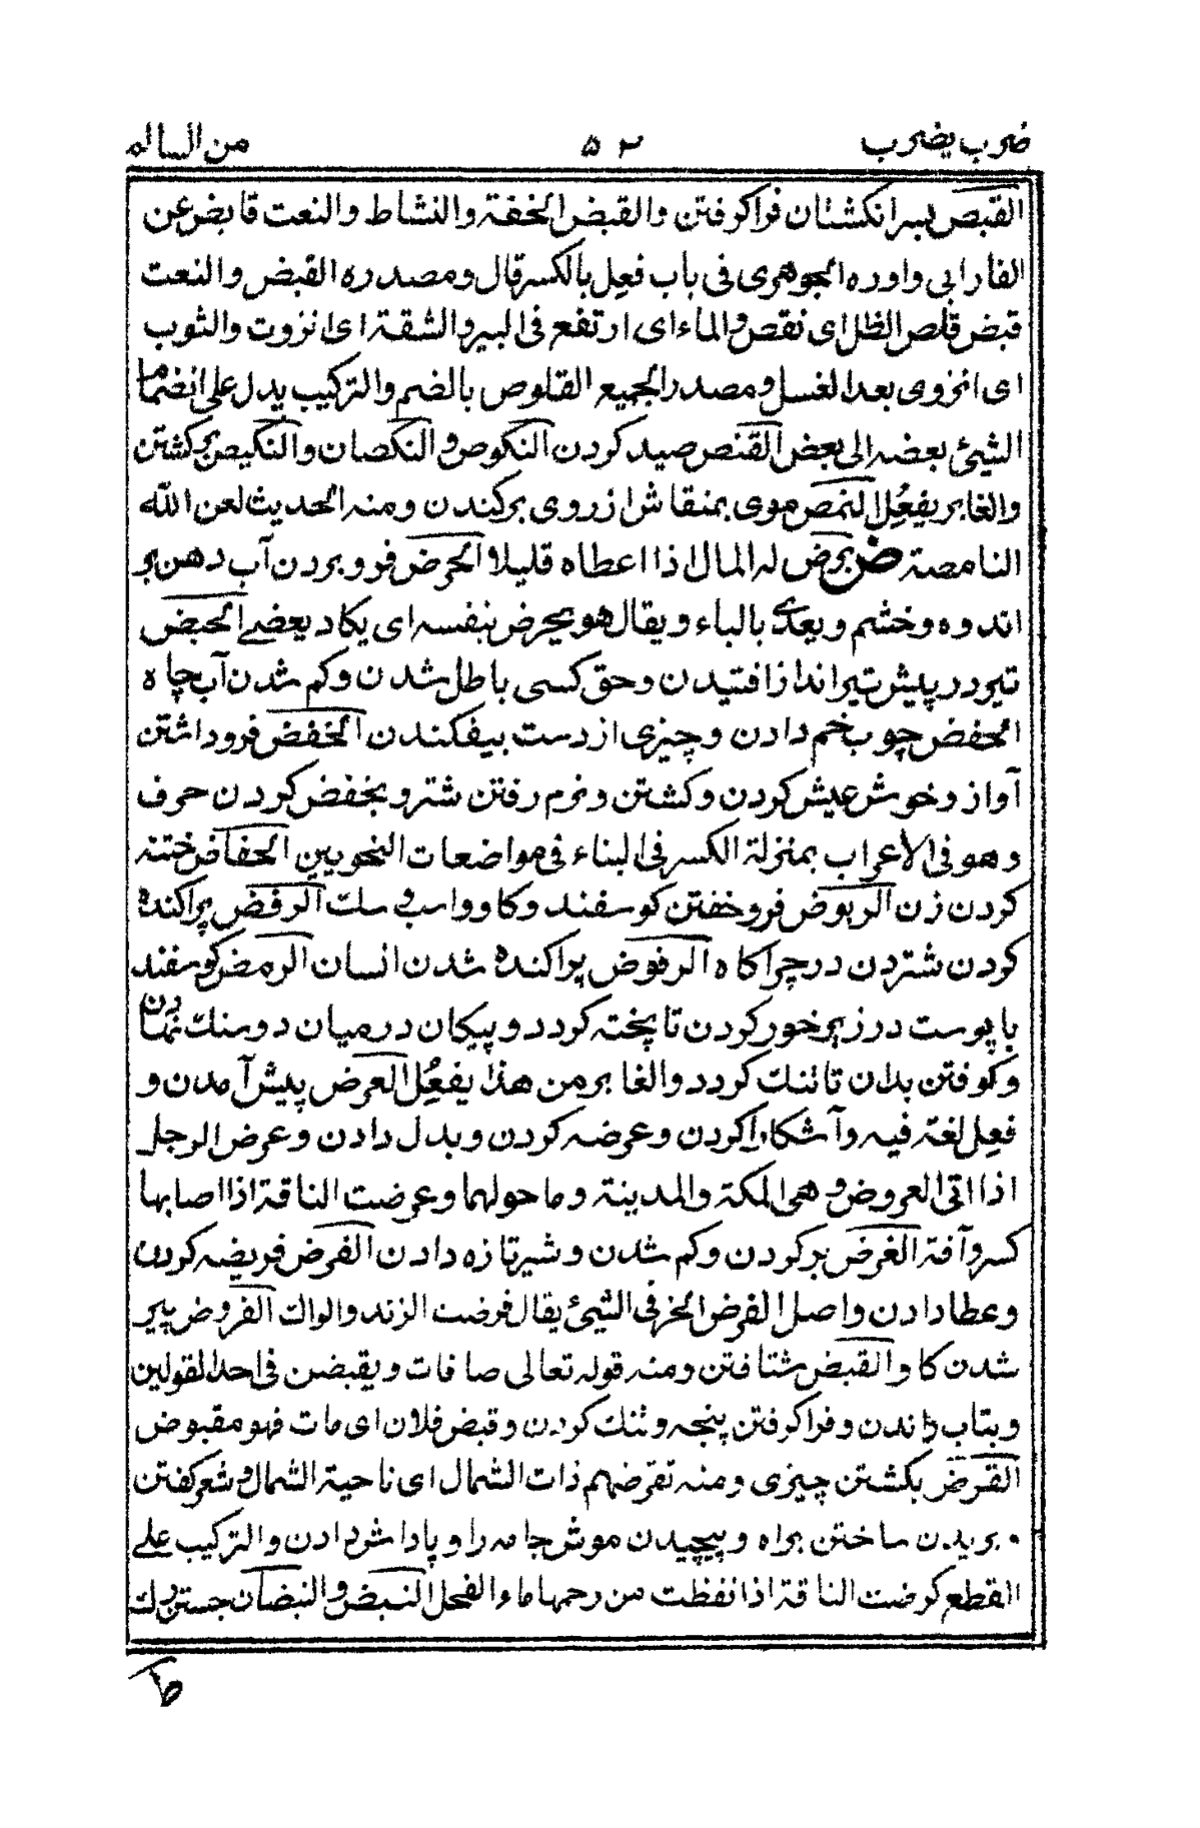 ضرب یضرب ۵۲ من السالم
القبص بسرانکشتان فراکرفتن والقبض الخفة والنشاط والنعت قابض عن
الفارابی واورده الجوهری فی باب فعل بالکسر قال ومصدره القبض والنعت
قبض قلص الظل ای نقص والماء ای ارتفع فی البیر والشقة ای انزوت والثوب
ای انزوی بعد الغسل ومصدر الجمیع القلوص بالضم والترکیب یدل علی انضمام
الشیئ بعضه الی بعض القنص صید کردن النکوص والنکصان والنکیص برکشتن
والغابر یفعُل النمص موی بمنقاش از روی برکندن ومنه الحدیث لعن الله
النامصة ض برض له المال اذا اعطاه قلیلا الجرض فرو بردن آب دهن بو
اندوه وخشم ویعدی بالباء ویقال هو یجرض بنفسه ای یکاد یعضے الحبض
تیر در پیش تیرانداز افتیدن وحق کسی باطل شدن وکم شدن آب چاه
الحفض چوب خم دادن وچیزی از دست بیفکندن الخفض فروداشتن
آواز وخوش عیش کردن وکشتن ونرم رفتن شتر وبخفض کردن حرف
وهو فی الاعراب بمنزلة الکسر فی البناء فی مواضعات النحویین الخفاض ختنه
کردن زن الربوض فروخفتن کوسفند وکاو واسب وسک الرفض پراکنده
کردن شتردن درچراکاه الرفوض پراکنده شدن انسان الرمض کوسفند
باپوست درزیر خور کردن تا پخته کردد وپیکان درمیان دوسنک نهادن
وکوفتن بدان تاتنک کردد والغابر من هذا یفعُل العرض پیش آمدن و
فعِل لغة فیه وآشکارا کردن وعرضه کردن وبدل دادن وعرض الرجل
اذا اتی العروض وهی المکة والمدینة وما حولهما وعرضت الناقة اذا اصابها
کسر وآفة الغرض پر کردن وکم شدن وشیرتازه دادن الفرض فریضه کردن
وعطا دادن واصل الفرض الحز فی الشیئ یقال فرضت الزند والواك الفروض پیر
شدن کاو القبض شتافتن ومنه قوله تعالی صافات ویقبضن فی احد القولین
وبتاب راندن وفراکرفتن پنجه وتنک کردن وقبض فلان ای مات فهو مقبوض
القرض بکشتن چیزی ومنه تقرضهم ذات الشمال ای ناحیة الشمال وشعر کفتن
بریدن ساختن براه وپیچیدن موش جامه را وپاداش دادن والترکیب علے
القطع کرضت الناقة اذا نفظت من رحمها ماء الفحل النبض والنبضان جستن رك